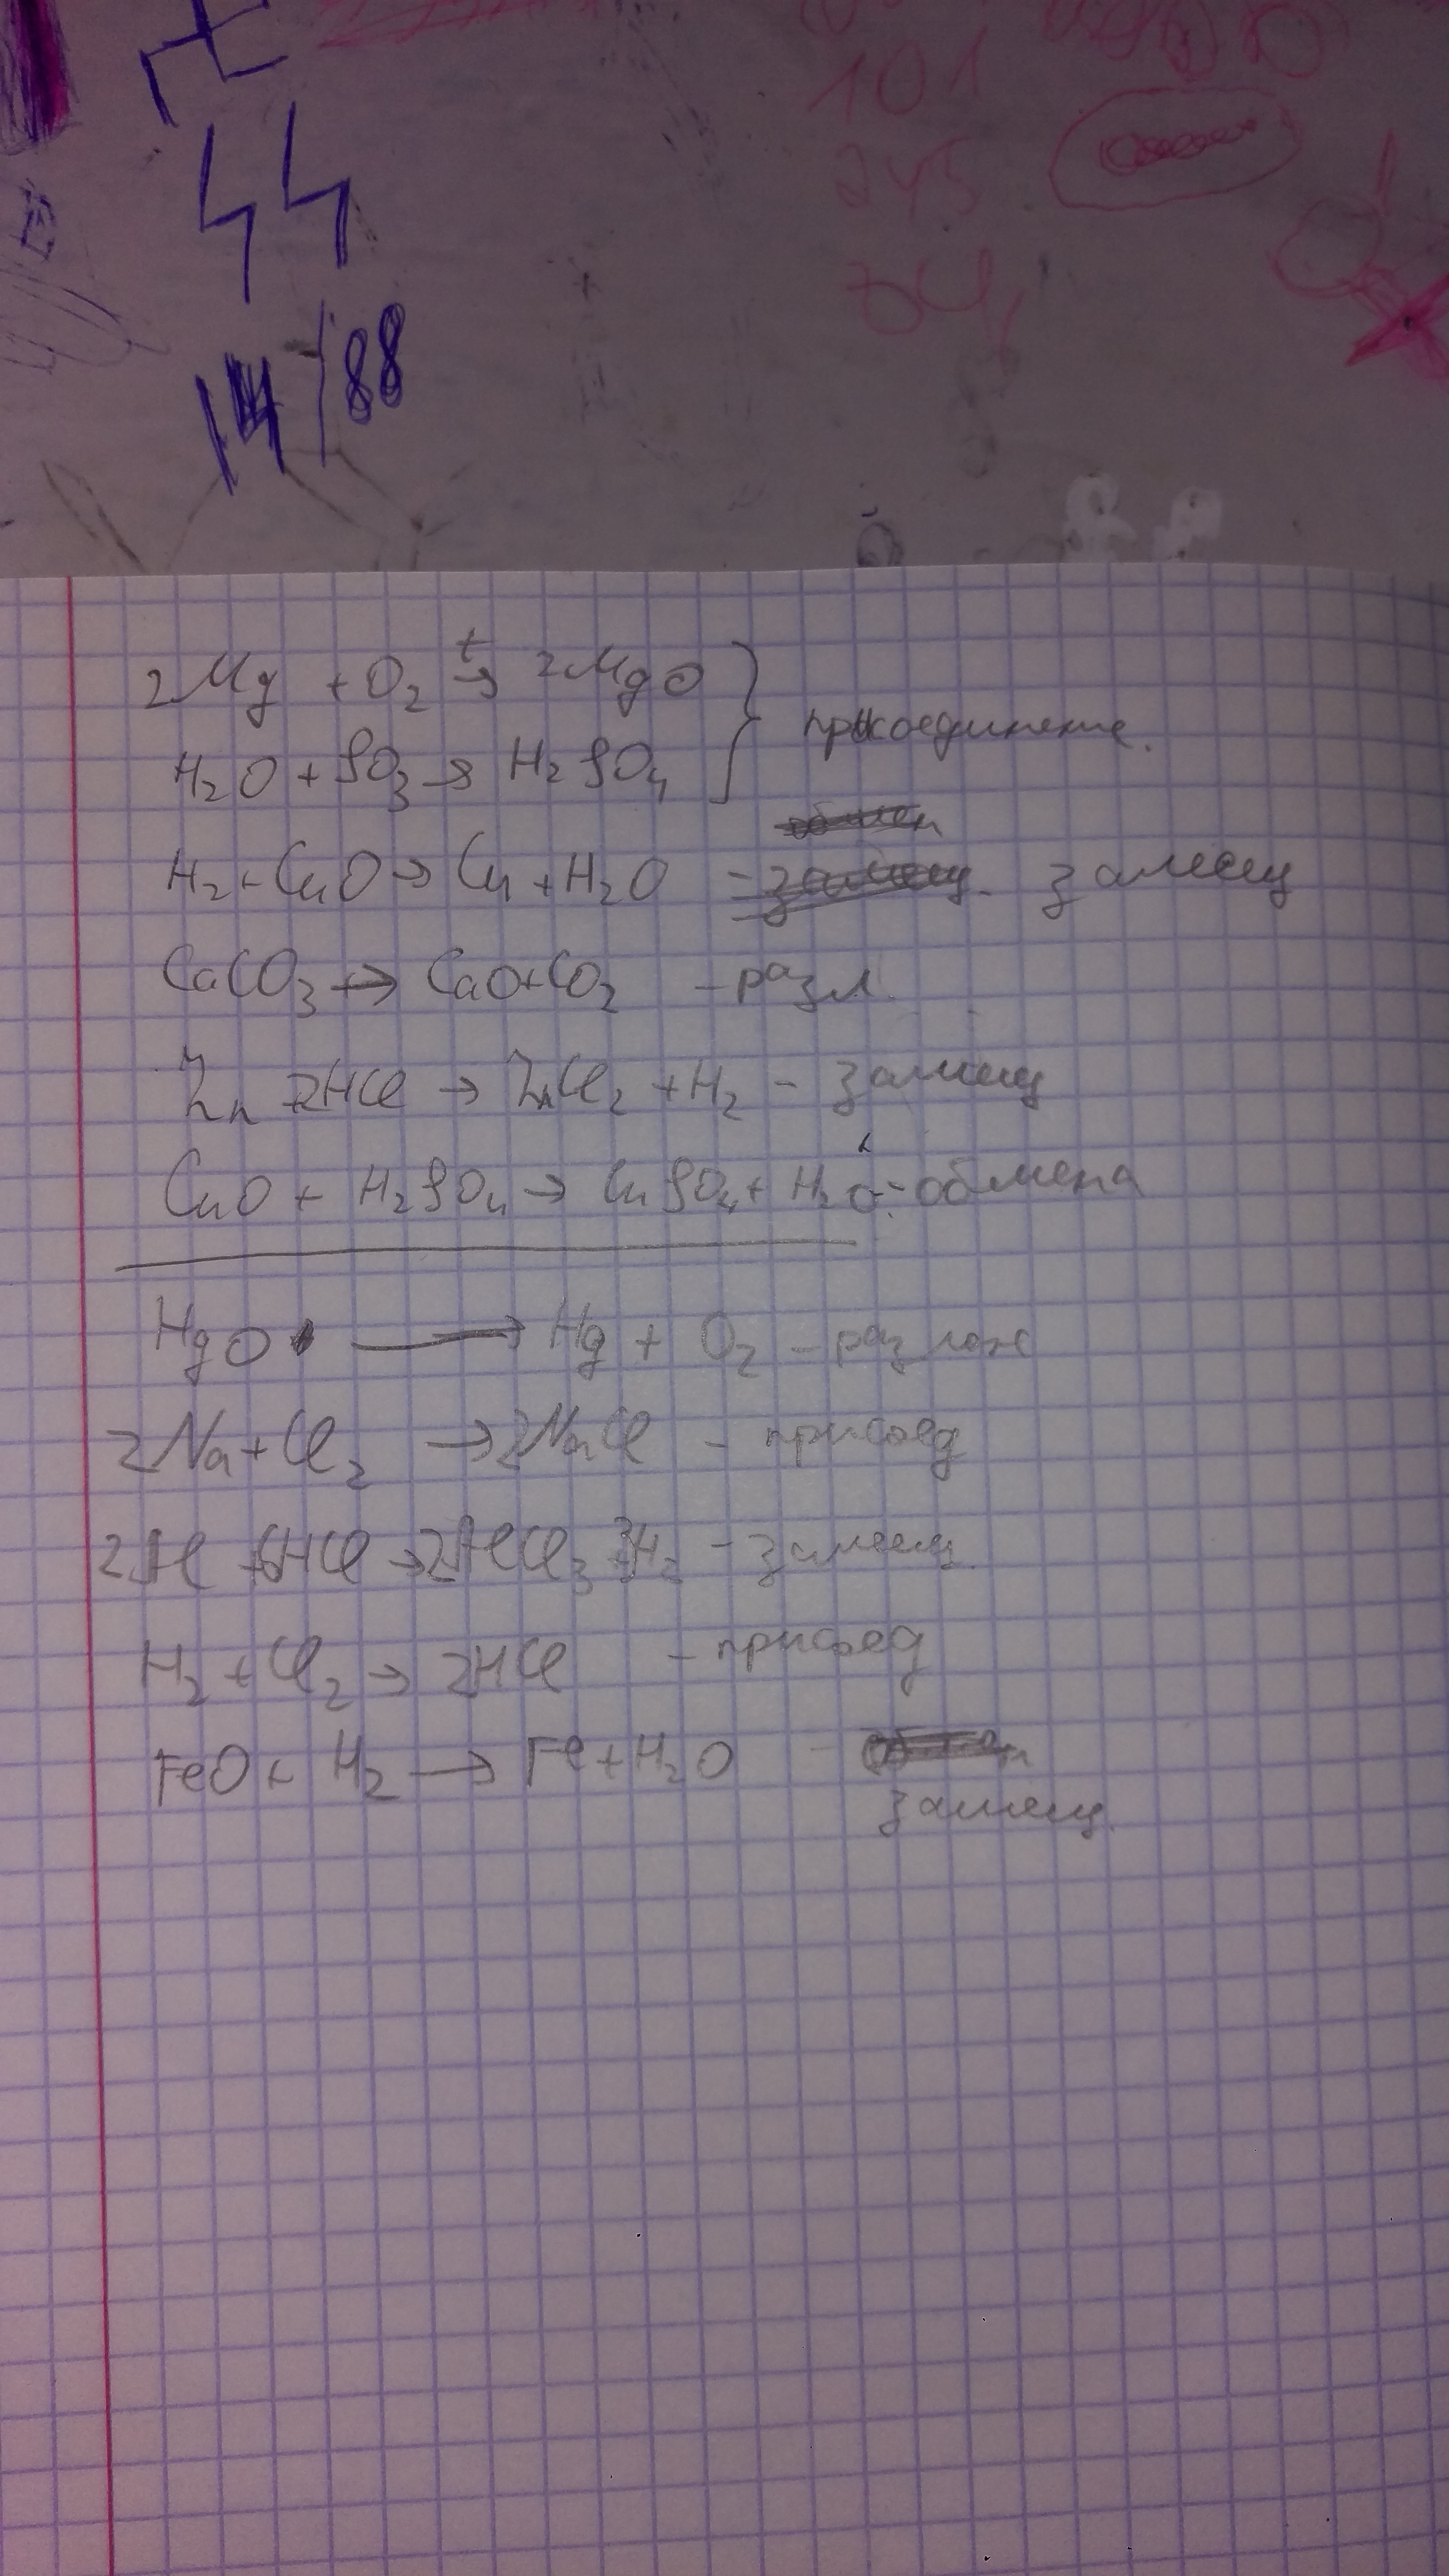 101
245
44
14/88
2Mg + O₂ t→ 2MgO
присоединение.
H₂O + SO₃ → H₂SO₄
обмен
H₂ + CuO → Cu + H₂O - замещ. замещ
CaCO₃ → CaO + CO₂ - разл.
Zn + 2HCl → ZnCl₂ + H₂ - замещ
CuO + H₂SO₄ → CuSO₄ + H₂O - обмена
HgO → Hg + O₂ - разлож
2Na + Cl₂ → 2NaCl - присоед
2Al + 6HCl → 2AlCl₃ + 3H₂ - замещ.
H₂ + Cl₂ → 2HCl - присоед
FeO + H₂ → Fe + H₂O - обмен
замещ.